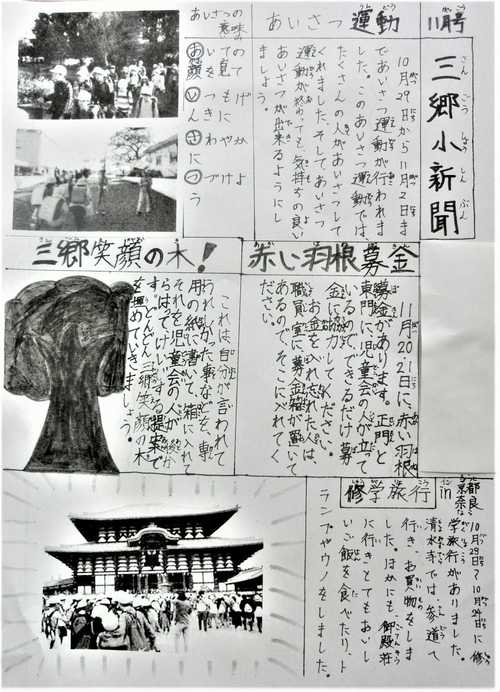 11月号
三郷小新聞
さんごうしょうしんぶん
あいさつ運動
10月29日から11月2日ま
であいさつ運動が行われま
した。このあいさつ運動では、
たくさんの人があいさつして
くれました。そして、あいさつ
運動が終わっても気持ちの良い
あいさつが出来るようにし
ましょう。
あいさつの
意味
あいての
顔を見て
いつもげ
んきに
さわやかに
つづけよ
赤い羽根募金
11月20、21日に、赤い羽根
募金があります。正門と
東門に児童会の人が立て
いるので、できるだけ募
金に協力してください。
お金を入れ忘れた人は、
職員室に募金箱が置いて
あるので、そこに入れてく
ださい。
三郷笑顔の木!
これは、自分が言われて
うれしかった事などを、専
用の紙に書いて、箱に入れて
それを児童会の人が
らはってけいじする提案で
す。どんどん三郷笑顔の木
を埋めていきましょう。
修学旅行
in
京都
奈良
10月29日に修
学旅行がありました。
清水寺では、参道で
行き、お買い物をしま
した。ほかにも御殿荘
に行きとてもおいし
いご飯を食べたり、ト
ランプやウノをしました。